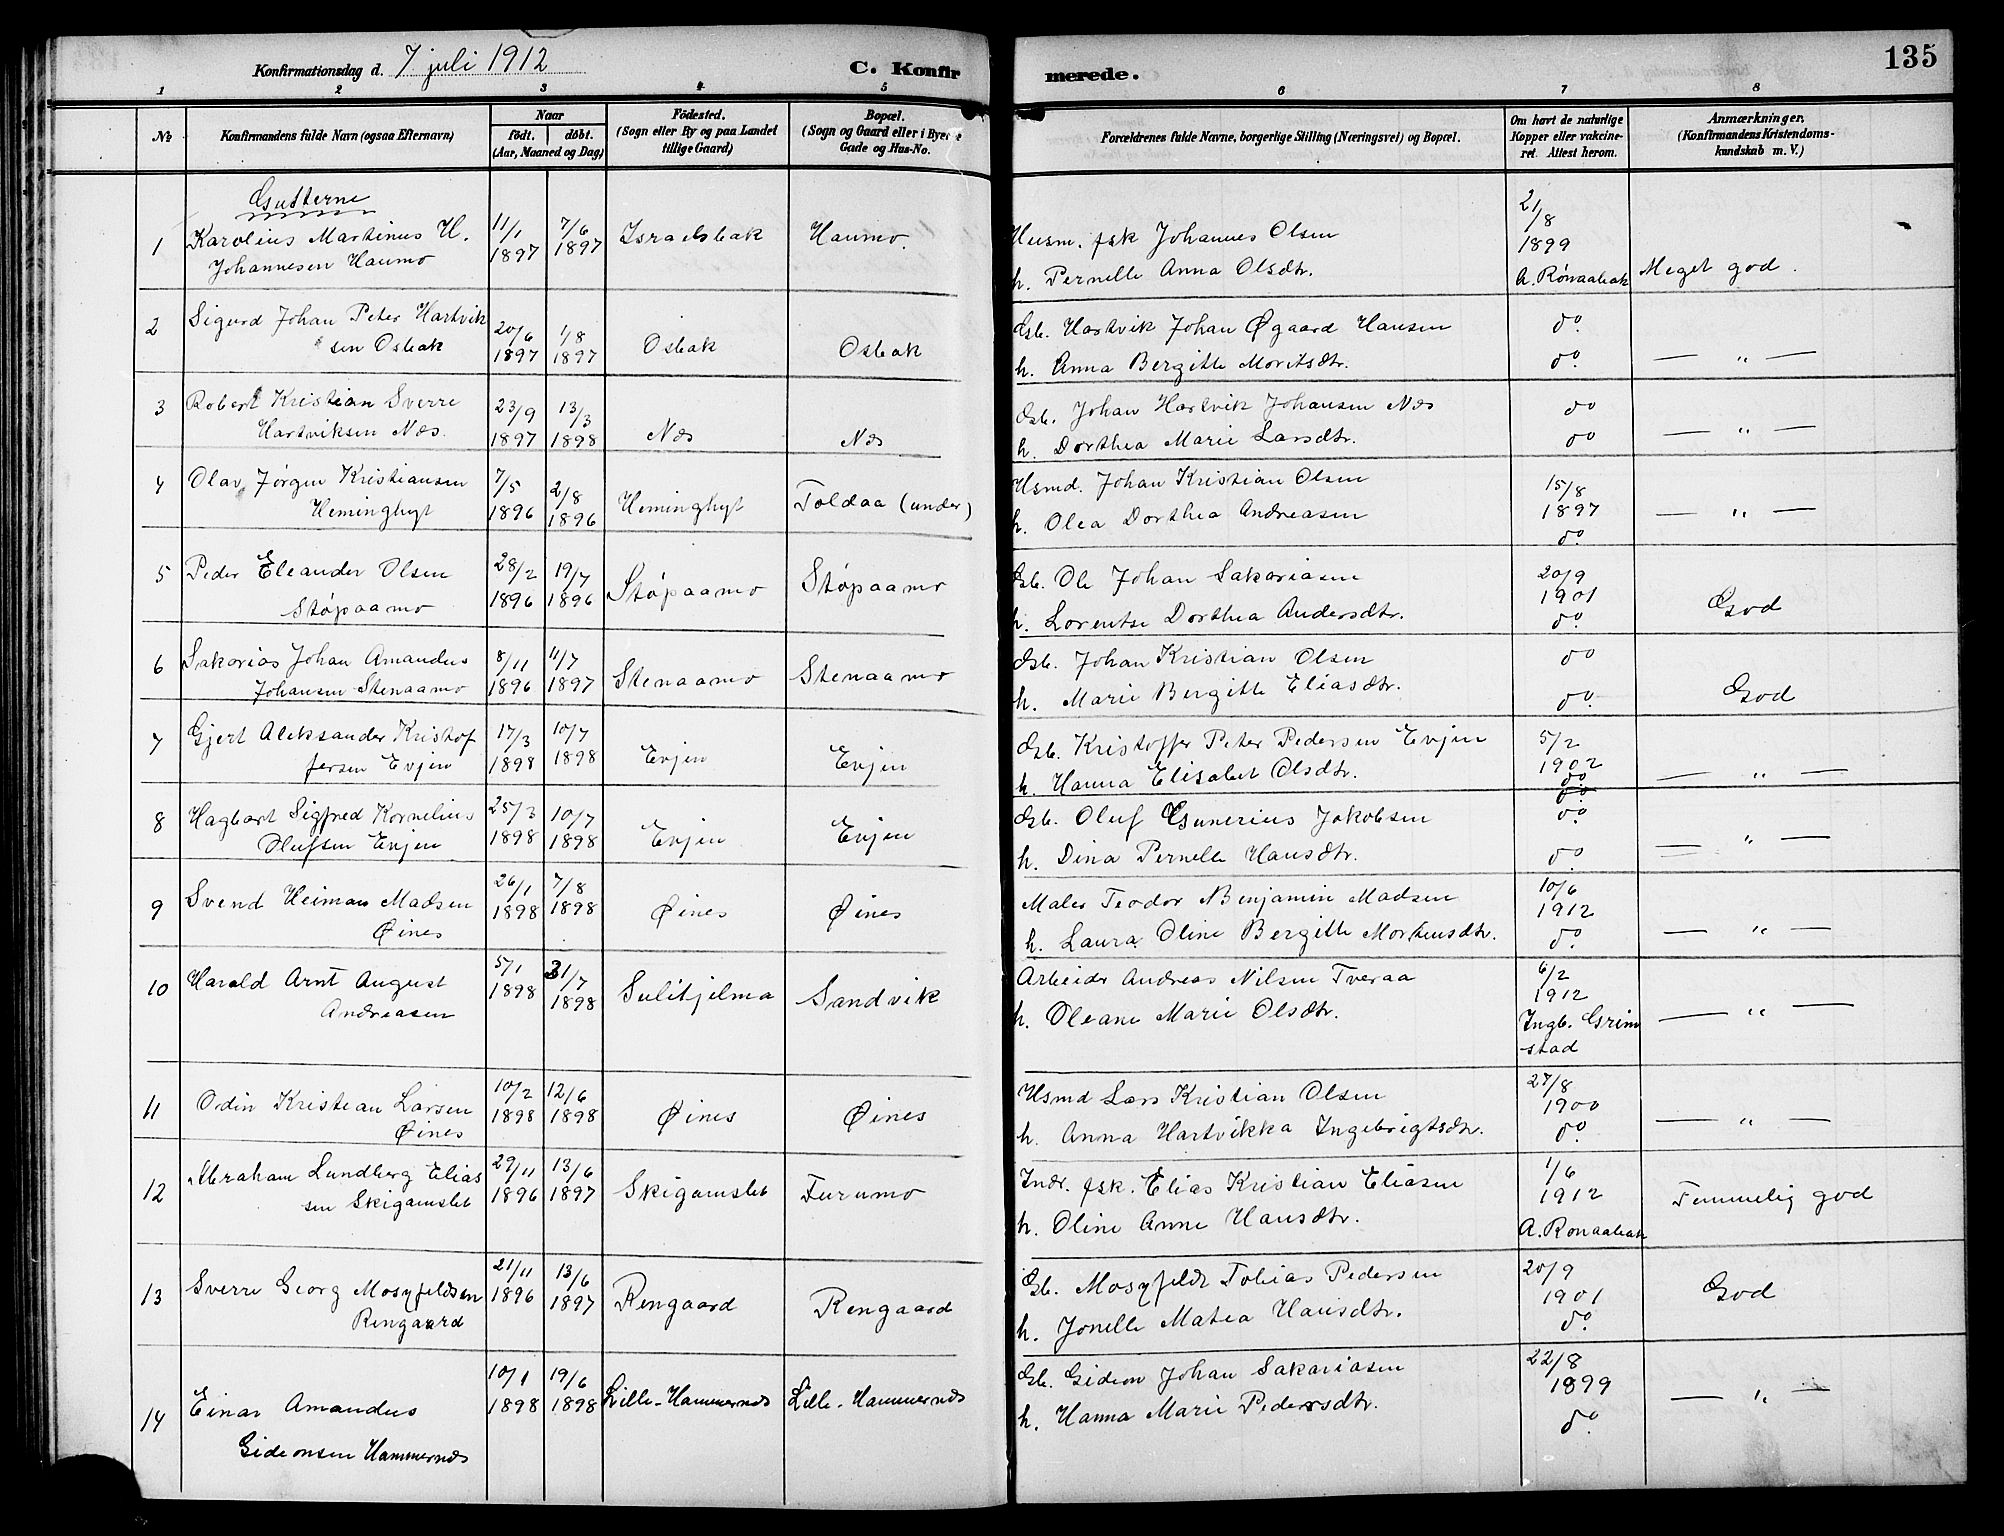 Konfirmationsdag d. 7 juli 1912
C. Konfirmerede.
135
1 2 3 4 5 6 7 8
№
Konfirmandens fulde Navn (ogsaa Efternavn)
Naar
født. døbt.
(Aar, Maaned og Dag)
Fødested.
(Sogn eller By og paa Landet
tillige Gaard)
Bopæl.
(Sogn og Gaard eller i Byerne
Gade og Hus-No.
Forældrenes fulde Navne, borgerlige Stilling (Næringsvei) og Bopæl.
Om havt de naturlige
Kopper eller vakcine-
ret. Attest herom.
Anmærkninger.
(Konfirmandens Kristendoms-
kundskab m. V.)
Gutterne
1 Karolius Martinus H. 11/1 7/6 Israelsbak Haumo. Husm. fsk Johannes Olsen 21/8
Johannesen Haumo 1897 1897 h. Pernelle Anna Olsdtr. 1899
A. Rønaabak Meget god.
2 Sigurd Johan Peter Hartvik 20/6 1/8 Gb. Hartvik Johan Øgaard Hansen do.
sen Osbak 1897 1897 Osbak Osbak h. Anna Bergitte Moritsdtr. do. — „ —
3 Robert Kristian Sverre 23/9 13/3 Gb. Johan Hartvik Johansen Næs do
Hartviksen Næs. 1897 1898 Næs Næs h. Dorthea Marie Larsdtr. do — „ —
4 Olav Jørgen Kristiansen 7/5 2/8 Hsmd. Johan Kristian Olsen 15/8
Heminghyt 1896 1896 Heminghyt Toldaa (under) h. Olea Dorthea Andreasen 1897 — „ —
do.
5 Peder Eleander Olsen 28/2 19/7 Gb. Ole Johan Sakariasen 20/9
Støpaamo 1896 1896 Støpaamo Støpaamo h. Lorentse Dorthea Andersdtr. 1901 God
do.
6 Sakarias Johan Amandus 8/11 11/7 Gb. Johan Kristian Olsen do
Johansen Stenaamo 1896 1897 Stenaamo Stenaamo h. Marie Bergitte Eliasdtr. do. God
7 Gjert Aleksander Kristof 17/3 10/7 Gb. Kristoffer Peter Pedersen Evjen 5/2
fersen Evjen 1898 1898 Evjen Evjen h. Hanna Elisabet Olsdtr. 1902 — „ —
do
8 Hagbart Sigfred Kornelius 25/3 10/7 Gb. Oluf Gunerius Jakobsen do.
Olufsen Evjen 1898 1898 Evjen Evjen h. Dina Pernelle Hansdtr. do — „ —
9 Svend Heiman Madsen 26/1 7/8 Maler Teodor Benjamin Madsen 10/6
Øines 1898 1898 Øines Øines h. Laura Oline Bergitte Mortensdtr. 1912
do. — „ —
10 Harald Arnt August 5/1 31/7 Arbeider Andreas Nilsen Tveraa 6/2
Andreasen 1898 1898 Sulitjelma Sandvik h. Oleane Marie Olsdtr. 1912 — „ —
Ingb. Grim
stad
11 Odin Kristian Larsen 10/2 12/6 Hsmd Lars Kristian Olsen 27/8
Øines 1898 1898 Øines Øines h. Anna Hartvikka Ingebrigtsdtr. 1900 — „ —
do.
12 Abraham Lundberg Elias 29/11 13/6 Indr. fsk. Elias Kristian Eliasen 1/6
sen Skigamslet 1896 1897 Skigamslet Furumo h. Oline Anne Hansdtr. 1912 Temmelig god
A. Rønaabak
13 Sverre Georg Mosyfeldsen 21/11 13/6 Gb. Mosyfeldt Tobias Pedersen 20/9
Rengaard 1896 1897 Rengaard Rengaard h. Jonelle Matea Hansdtr. 1901 God
do.
14 Einar Amandus 10/1 19/6 Gb. Gideon Johan Sakariasen 22/8
Gideonsen Hammernæs 1898 1898 Lille-Hammernæs Lille-Hammernæs h. Hanna Marie Pedersdtr. 1899 — „ —
do.